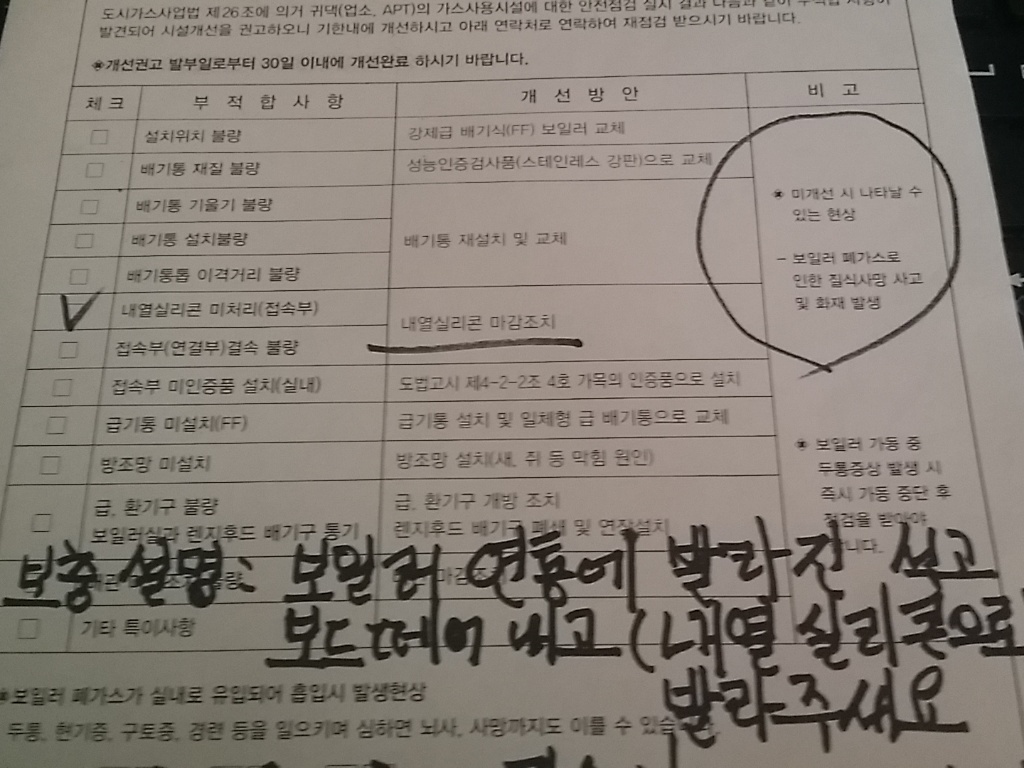 도시가스사업법 제26조에 의거 귀댁(업소, APT)의 가스사용시설에 대한 안전점검 실시 결과 다음과 같이
발견되어 시설개선을 권고하오니 기한내에 개선하시고 아래 연락처로 연락하여 재점검 받으시기 바랍니다.
※개선권고 발부일로부터 30일 이내에 개선완료 하시기 바랍니다.
체크 부적합사항 개선방안 비고
설치위치 불량 강제급 배기식(FF) 보일러 교체
배기통 재질 불량 성능인증검사품(스테인레스 강판)으로 교체
배기통 기울기 불량
배기통 설치불량 배기통 재설치 및 교체
배기통톱 이격거리 불량
내열실리콘 미처리(접속부) 내열실리콘 마감조치
접속부(연결부)결속 불량
접속부 미인증품 설치(실내) 도법고시 제4-2-2조 4호 가목의 인증품으로 설치
급기통 미설치(FF) 급기통 설치 및 일체형 급 배기통으로 교체
방조망 미설치 방조망 설치(새, 쥐 등 막힘 원인)
급, 환기구 불량 급, 환기구 개방 조치
보일러실과 렌지후드 배기구 통기 렌지후드 배기구 폐쇄 및 연장설치
기타 특이사항
※ 미개선 시 나타날 수
있는 현상
- 보일러 폐가스로
인한 질식사망 사고
및 화재 발생
※ 보일러 가동 중
두통증상 발생 시
즉시 가동 중단 후
점검을 받아야
보충설명: 보일러 연통에 발라진 석고
보드떼어 내고 (내열 실리콘으로
발라주세요
※보일러 폐가스가 실내로 유입되어 흡입시 발생현상
두통, 현기증, 구토증, 경련 등을 일으키며 심하면 뇌사, 사망까지도 이를 수